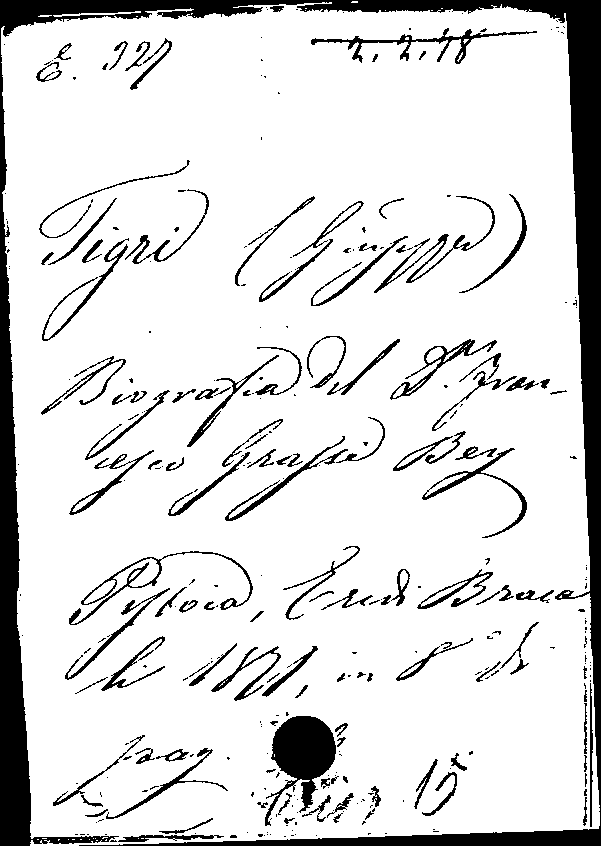 E. 327 2. 2. 78
Tigri (Giuseppe)
Biografia del D.r Fran-
cesco Grassi Bey
Pistoia, Eredi Braca-
li 1871, in 8° di
pag.
15